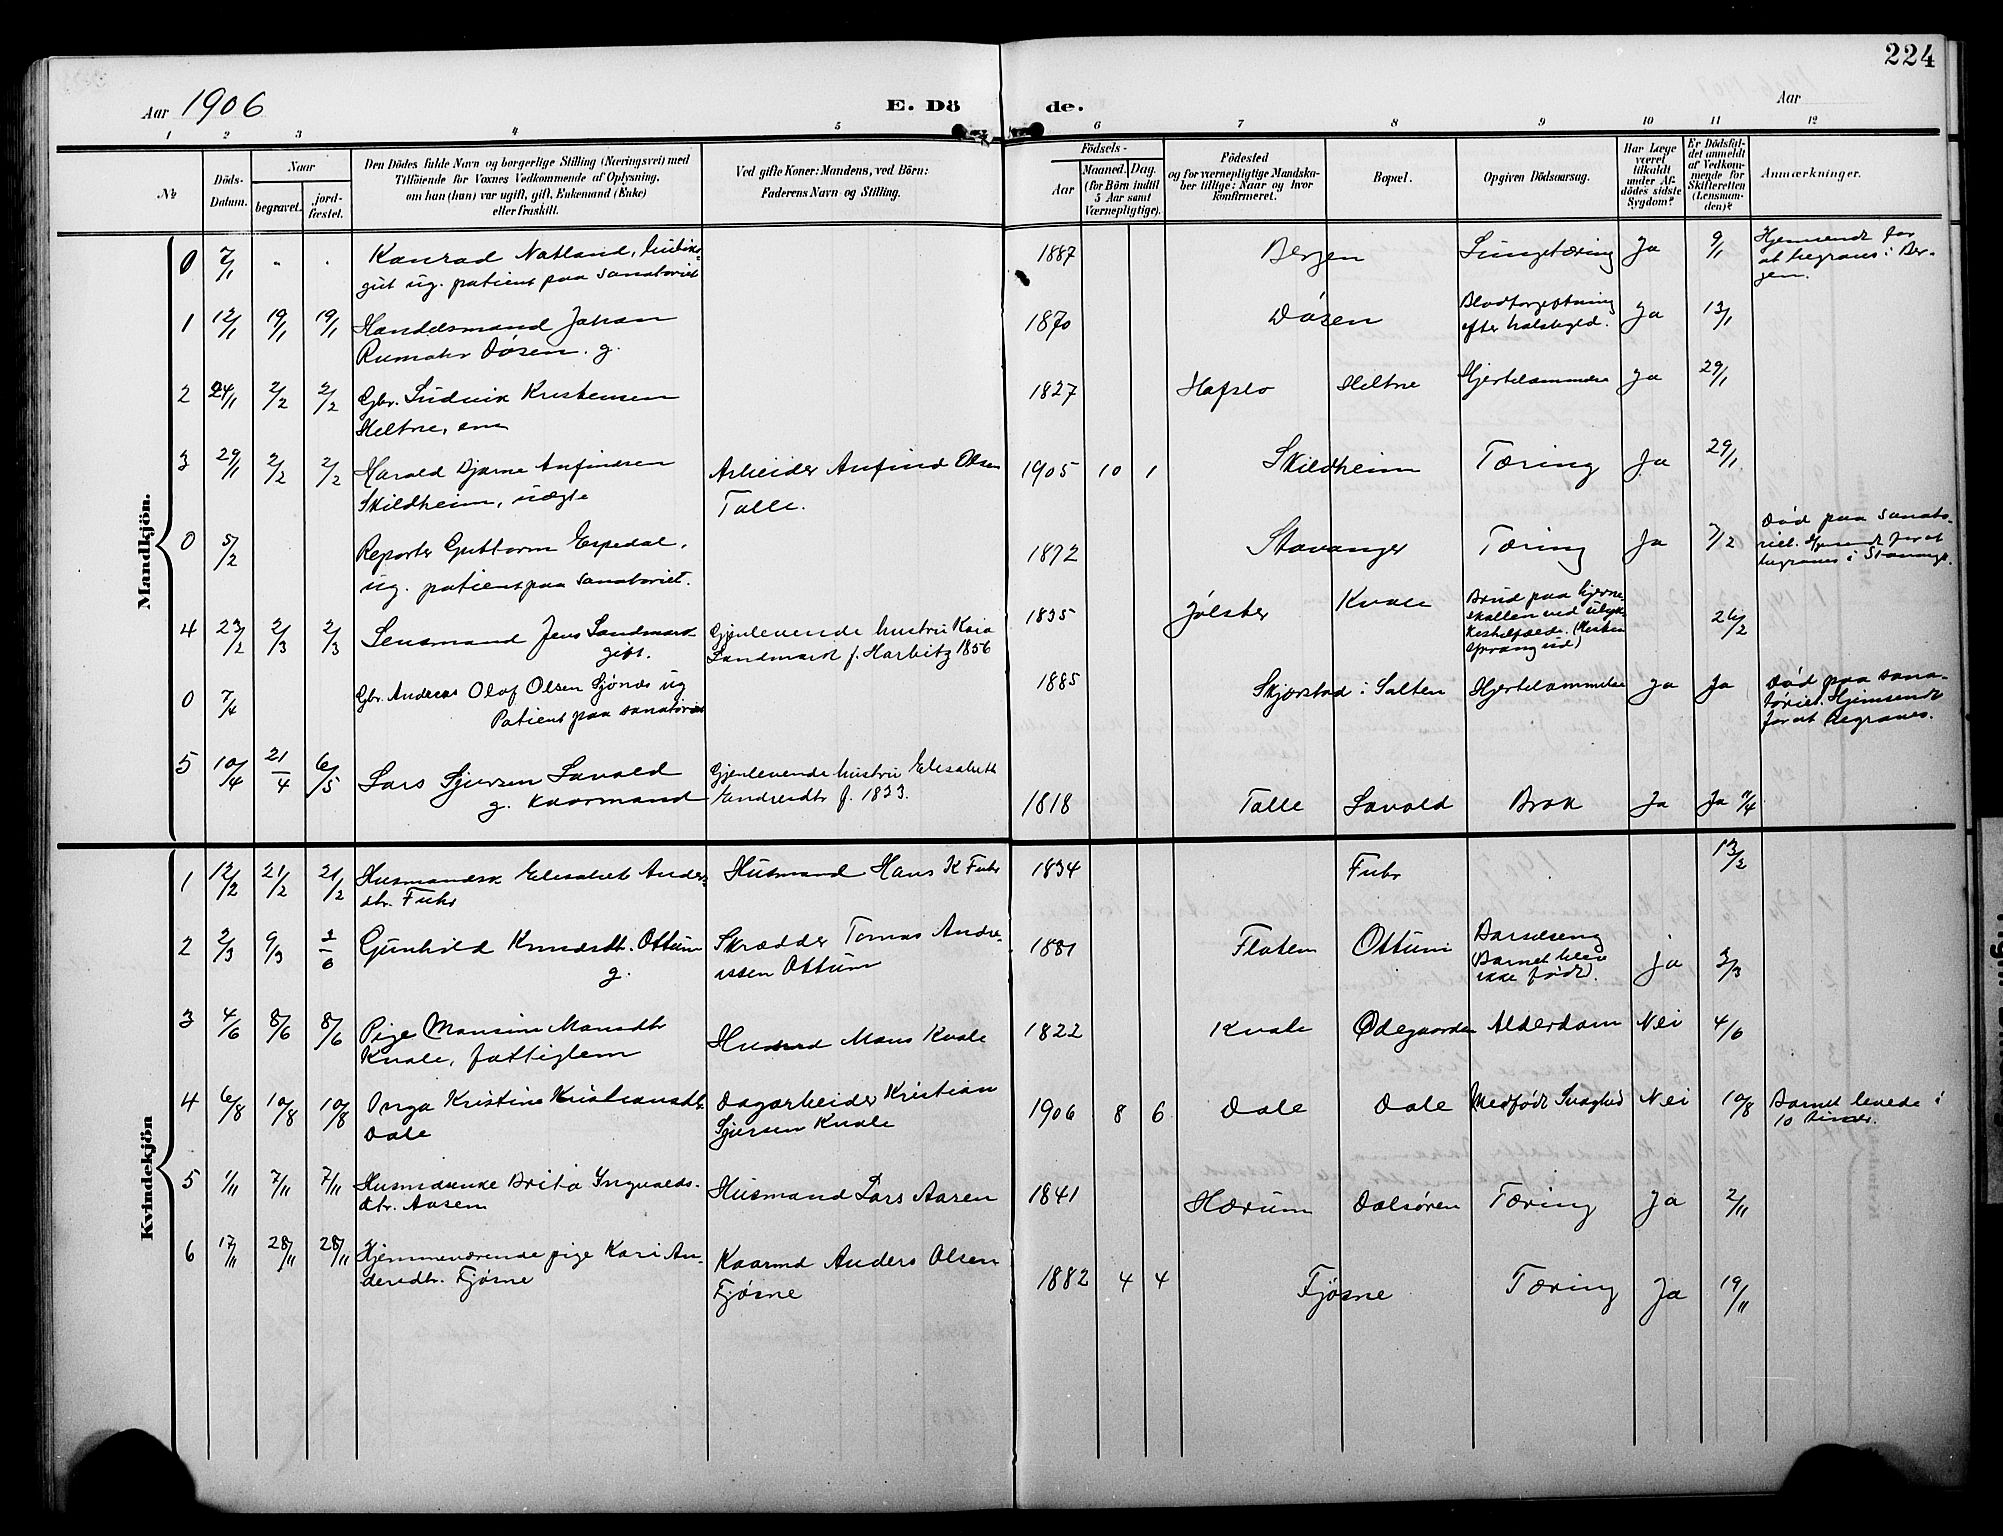 224
Aar 1906
E. Dö de.
Aar
1 2 3 4 5 6 7 8 9 10 11 12
No
Döds-
Datum.
Naar
begravet.
jord-
fæstet.
Den Dödes fulde Navn og borgerlige Stilling (Næringsvei) med
Tilföiende for Voxnes Vedkommende af Oplysning,
om han (hun) var ugift, gift, Enkemand (Enke)
eller fraskilt.
Ved gifte Koner: Mandens, ved Börn:
Faderens Navn og Stilling.
Födsels-
Aar
Maaned. Dag.
(for Börn indtil
5 Aar samt
Værnepligtige).
Födested
og for værnepligtige Mandska-
ber tillige: Naar og hvor
konfirmeret.
Bopæl.
Opgiven Dödsaarsag.
Har Læge
været
tilkaldt
under Af-
dödes sidste
Sygdom?
Er Dödsfal-
det anmeldt
af Vedkom-
mende for
Skifteretten
(Lensman-
den)?
Anmærkninger.
Mandkjön.
0 7/1 " " Konrad Natland,
gut ug. patient paa sanatoriet
1887 Bergen Lungetæring Ja 9/1
Hjemsendt for
at begraves i Ber-
gen.
1 12/1 19/1 19/1 Handelsmand Johan
Rumohr Døsen. g.
1870 Døsen Blodforgiftning
efter halsbyld. Ja 13/1
2 24/1 2/2 2/2 Gbr. Ludvik Kristensen
Heltne, em
1827 Hafslo Heltne Hjertelammelse Ja 29/1
3 29/1 2/2 2/2 Harald Bjarne Anfindsen
Skildheim, uægte
Arbeider Anfind Olsen
Talle.
1905 10 1 Skildheim Tæring Ja 29/1
0 5/2 Reporter Guttorm Espedal,
ug. patient paa sanatoriet.
1872 Stavanger Tæring Ja 7/2
Død paa sanato-
riet. Hjemsendt for at
begraves i Stavanger.
4 23/2 2/3 2/3 Lensmand Jens Landmark
gift.
Gjenlevende hustru Kaia
Landmark f. Harbitz 1856
1835 Jølster Kvale Brud paa hjerne-
skallen ved ulyk-
keshilfælde. (Hesten
sprang ud) 26/2
0 7/4 Gbr. Andreas Olaf Olsen Sjønes ug
Patient paa sanatoriet
1885 Skjerstad i Salten Hjertelammelse Ja Ja
Død paa sana-
toriet. Hjemsendt
for at begraves.
5 10/4 21/4 6/5 Lars Sjursen Lavold
g. kaarmand
Gjenlevende hustru Elisabeth
Endresdtr f. 1833.
1818 Talle Lavold Brok Ja Ja 11/4
Kvindekjön
1 12/2 21/2 21/2 Husmandsk Elisabet Anders-
dtr. Fuhr
Husmand Hans K Fuhr
1834 Fuhr 13/2
2 2/3 9/3 Gunhild Knudsdt. Ottum
g.
Skrædder Tomas Andre-
assen Ottum
1881 Flaten Ottum Barselseng
(Barnet blev
ikke født). ja 3/3
3 4/6 8/6 8/6 Pige Mansine Mansdtr
Kvale, fattiglem
Mons Kvale
1822 Kvale Ødegaarden Alderdom Nei 4/6
4 6/8 10/8 10/8 Inga Kristine Kristiansdtr.
Dale
Dagarbeider Kristian
Sjursen Kvale
1906 8 6 Dale Dale Medfødt Svaghed Nei 10/8
Barnet levede i
10 timer.
5 1/11 7/11 7/11 Husmdsenke Brita Ingvalds-
dtr. Aasen
Husmand Lars Aasen
1841 Hærum Dalsøren Tæring Ja 2/11
6 17/11 28/11 28/11 Hjemmeværende pige Kari An-
dersdtr. Fjøsne
Kaarmd Anders Olsen
Fjøsne
1882 4 4 Fjøsne Tæring Ja 19/11